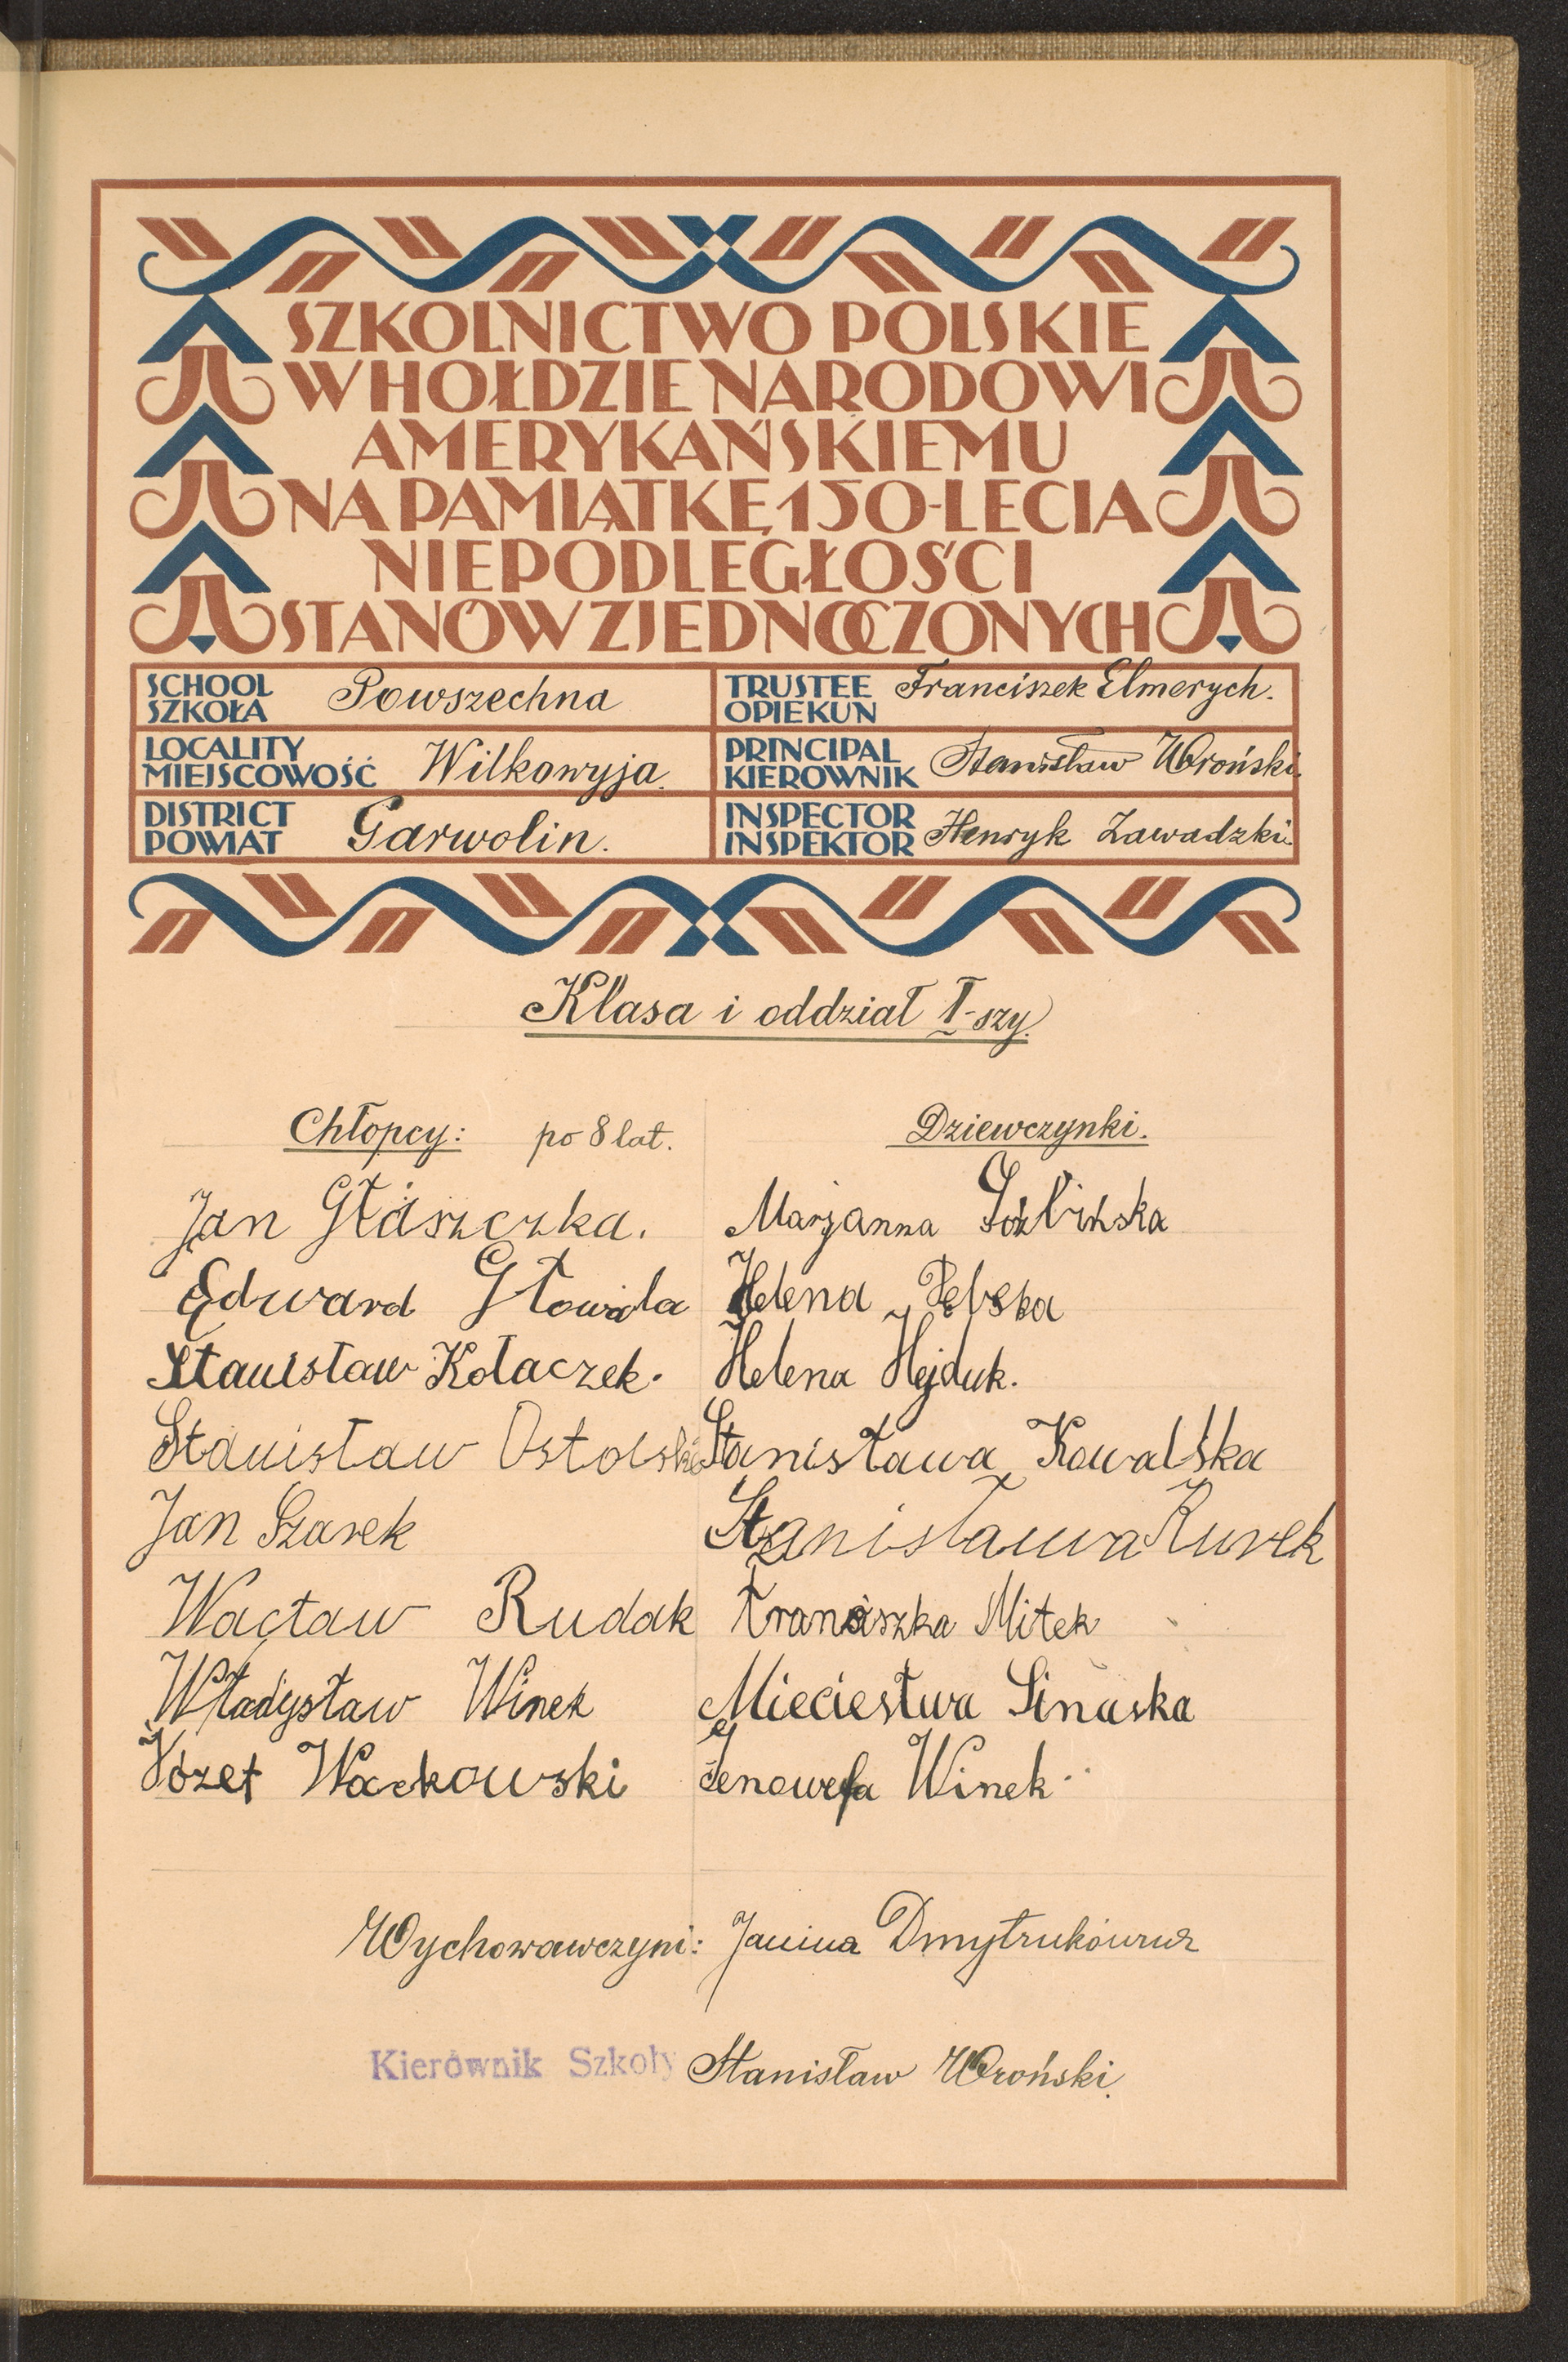 SZKOLNICTWO POLSKIE
W HOŁDZIE NARODOWI
AMERYKAŃSKIEMU
NA PAMIĄTKĘ 150-LECIA
NIEPODLEGŁOŚCI
STANÓW ZJEDNOCZONYCH
SCHOOL SZKOŁA Powszechna
TRUSTEE OPIEKUN Franciszek Elmerych.
LOCALITY MIEJSCOWOŚĆ Wilkowyja.
PRINCIPAL KIEROWNIK Stanisław Wroński.
DISTRICT POWIAT Garwolin.
INSPECTOR INSPEKTOR Henryk Zawadzki.
Klasa i oddział I-szy.
Chłopcy: po 8 lat.
Jan Głaszczka.
Edward Głowala
Stanisław Kołaczek.
Stanisław Ostolski
Jan Szarek
Wacław Rudak
Władysław Winek
Józef Wackowski
Dziewczynki.
Marjanna
Helena
Helena Hejduk.
Stanisława Kowalska
Stanisława Kurek
Franciszka Mitek
Mieciestwa
Genowefa Winek
Wychowawczyni: Janina Dmytrukówna
Kierownik Szkoły Stanisław Wroński.